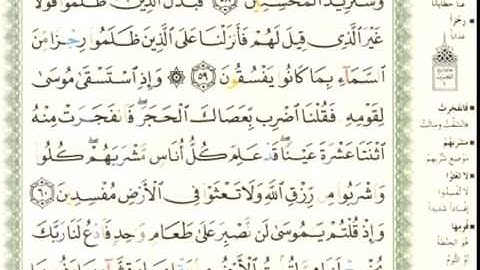 وَسَنَزِيدُ الْمُحْسِنِينَ ٥٨ فَبَدَّلَ الَّذِينَ ظَلَمُوا قَوْلًا
غَيْرَ الَّذِي قِيلَ لَهُمْ فَأَنزَلْنَا عَلَى الَّذِينَ ظَلَمُوا رِجْزًا مِّنَ
السَّمَاءِ بِمَا كَانُوا يَفْسُقُونَ ٥٩ ۞ وَإِذِ اسْتَسْقَىٰ مُوسَىٰ
لِقَوْمِهِ فَقُلْنَا اضْرِب بِّعَصَاكَ الْحَجَرَ ۖ فَانفَجَرَتْ مِنْهُ
اثْنَتَا عَشْرَةَ عَيْنًا ۖ قَدْ عَلِمَ كُلُّ أُنَاسٍ مَّشْرَبَهُمْ ۖ كُلُوا
وَاشْرَبُوا مِن رِّزْقِ اللَّهِ وَلَا تَعْثَوْا فِي الْأَرْضِ مُفْسِدِينَ ٦٠
وَإِذْ قُلْتُمْ يَا مُوسَىٰ لَن نَّصْبِرَ عَلَىٰ طَعَامٍ وَاحِدٍ فَادْعُ لَنَا رَبَّكَ
رِجْزًا
عَذَابًا
فَانفَجَرَتْ
فَانْشَقَّتْ وَسَالَتْ
مَشْرَبَهُمْ
مَوْضِعَ شُرْبِهِمْ
لَا تَعْثَوْا
لَا تُفْسِدُوا
إِفْسَادًا شَدِيدًا
فُومِهَا
هُوَ الْحِنْطَةُ
أَوِ الثُّومُ